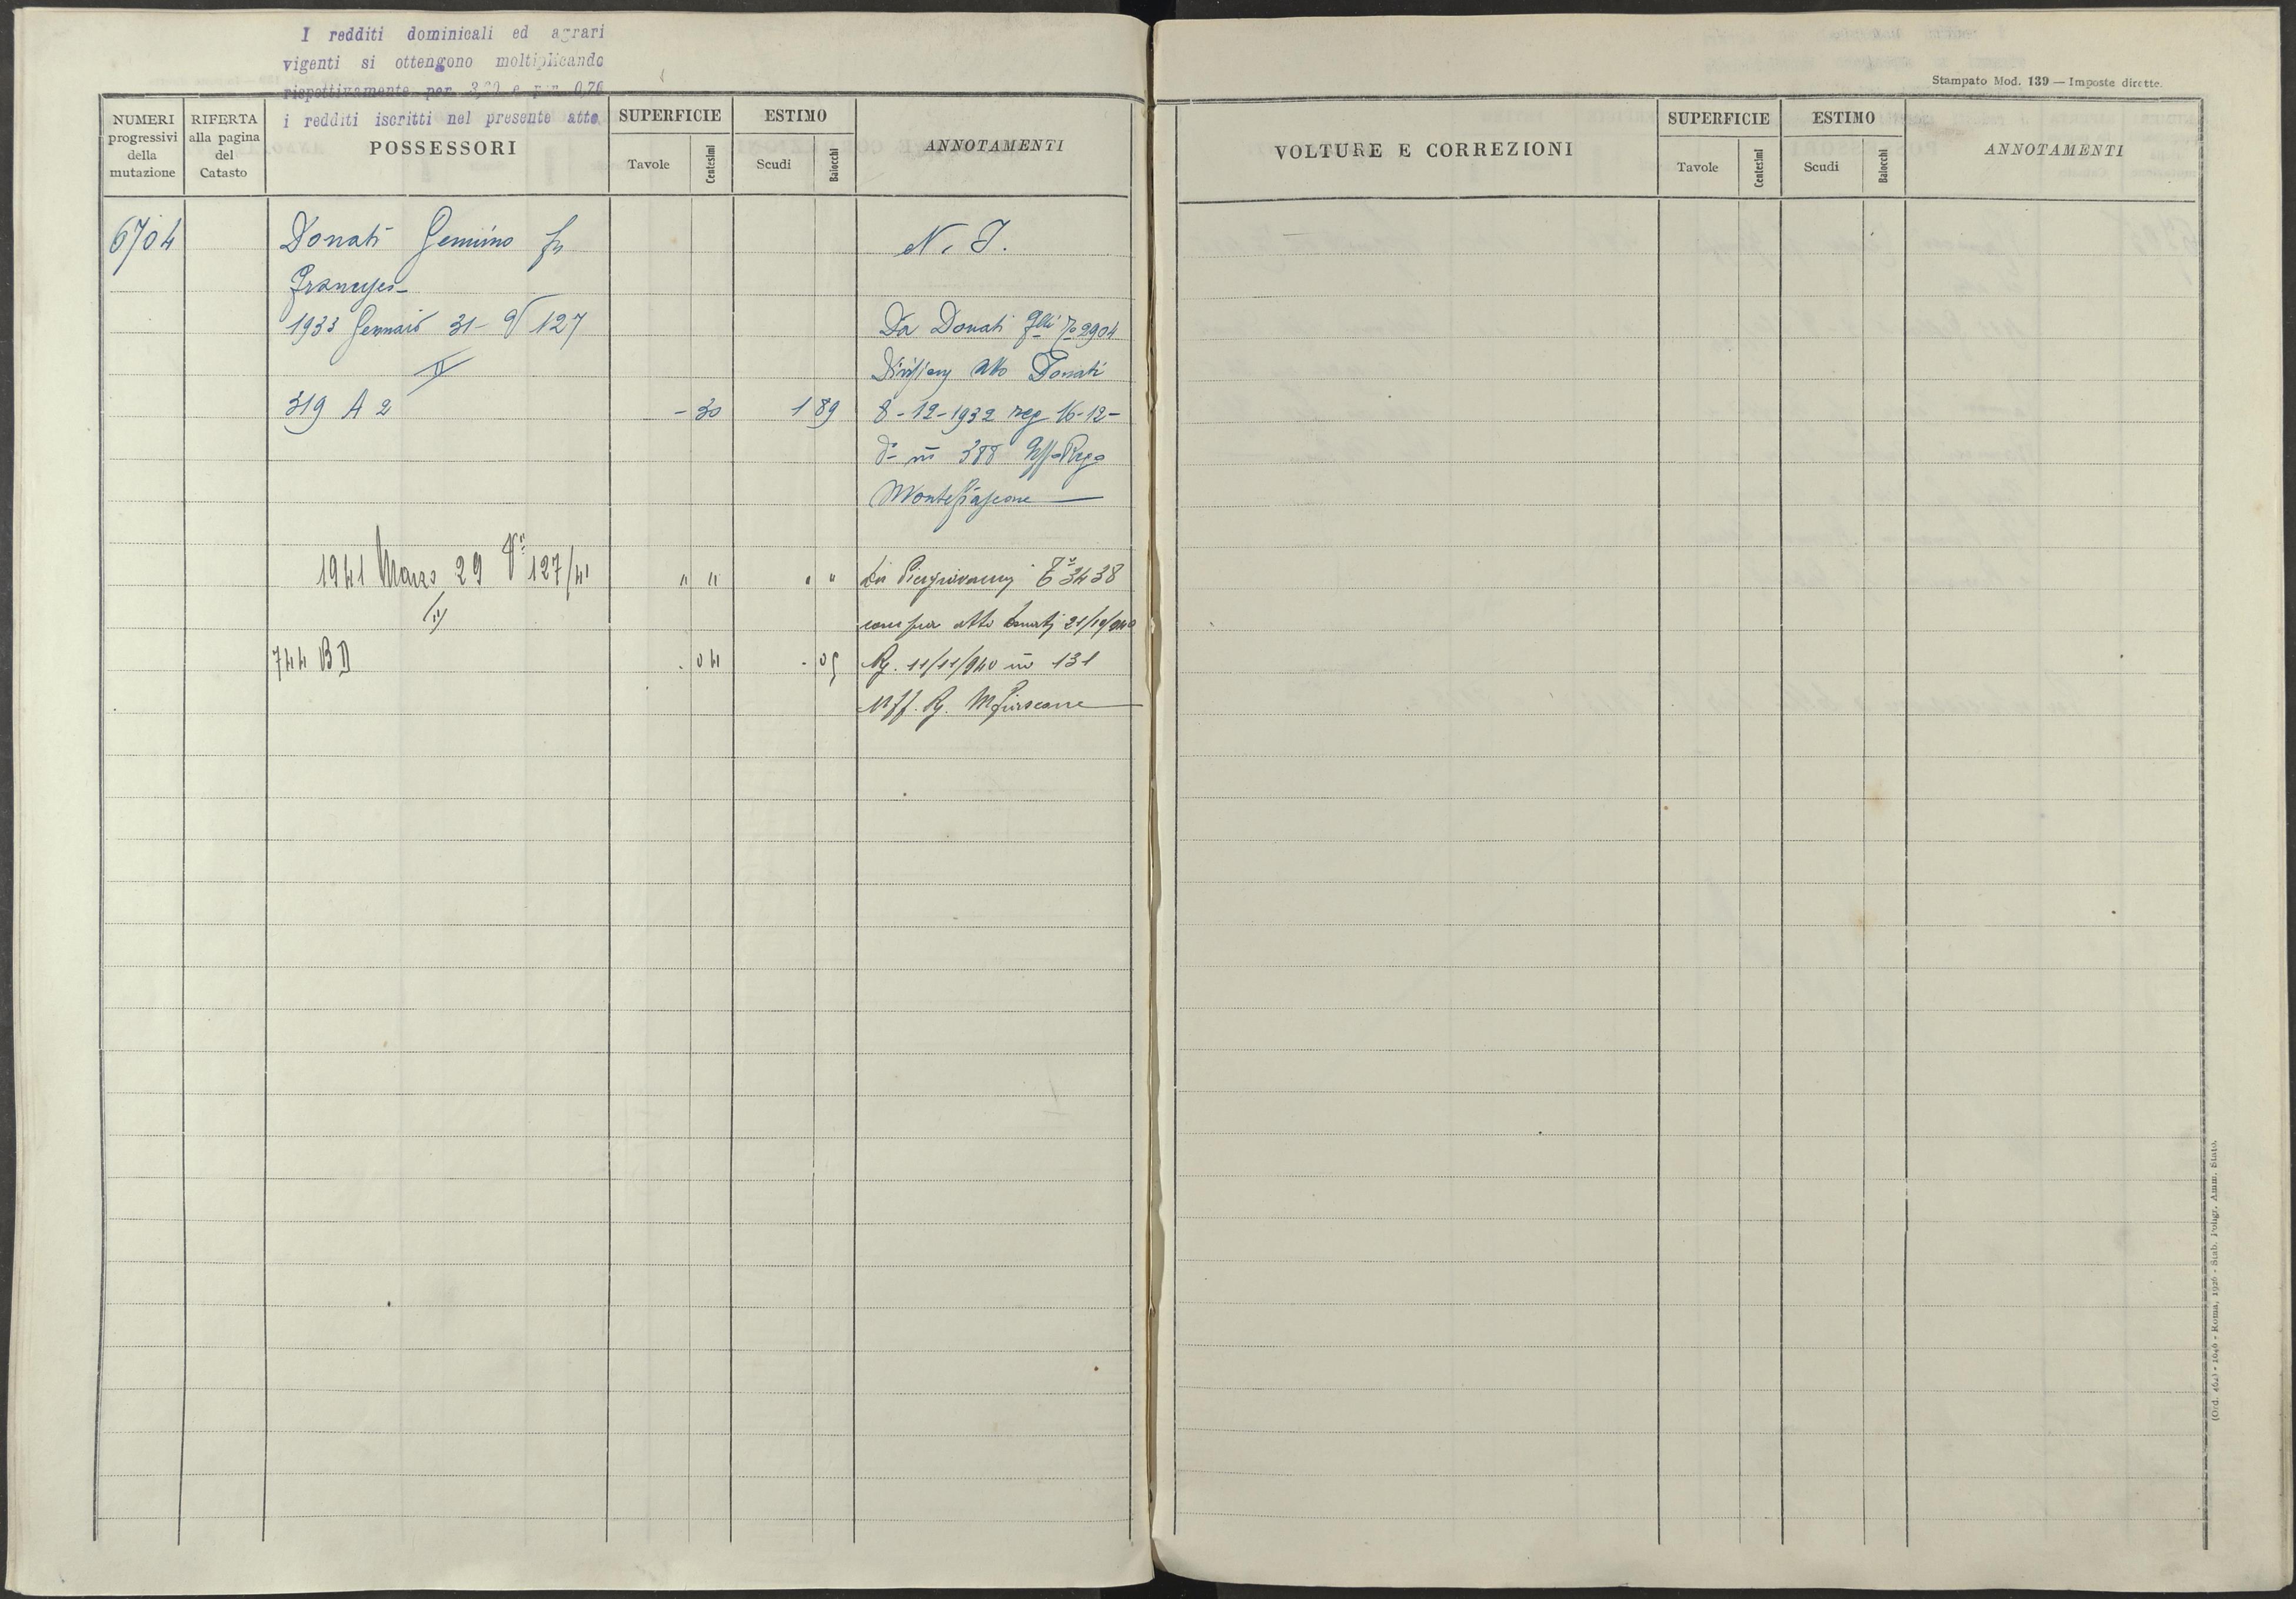 I redditi dominicali ed agrari
vigenti si ottengono moltiplicando
rispettivamente per 3,20 e per 0,70
i redditi iscritti nel presente atto.
NUMERI progressivi della mutazione
RIFERTA alla pagina del Catasto
POSSESSORI
SUPERFICIE
Tavole
Centesimi
ESTIMO
Scudi
Baiocchi
ANNOTAMENTI
6704 Donati Gemino fu N. I.
1933 Gennaio 31 - V 127 Da Donati 2904
Donati
319 A 2 - 30 1 89 8-12-1932 reg 16-12-
388
Montefiascone
1941 Marzo 29 V 127/41 " " " " 3438
atto Donati
744 BD . 04 - 05 Rg. 11/11/940 131
Uff. Rg. Mfiascone
Stampato Mod. 139 — Imposte dirette.
VOLTURE E CORREZIONI
SUPERFICIE
Tavole
Centesimi
ESTIMO
Scudi
Baiocchi
ANNOTAMENTI
Roma, 1926 - Stab. Poligr. Amm. Stato.